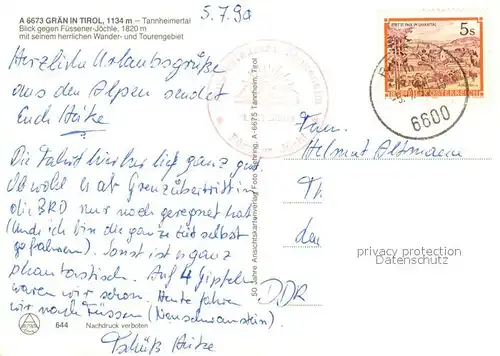 A 6673 GRÄN IN TIROL, 1134 m – Tannheimertal
Blick gegen Füssener-Jöchle, 1820 m
mit seinem herrlichen Wander- und Tourengebiet
5.7.90
Herzliche Urlaubsgrüße
aus den Alpen sendet
Euch Heike
Die Fahrt hierher lief ganz gut
Obwohl es ab Grenzübertritt in
die BRD nur noch geregnet hat
(Und ich bin die ganze Zeit selbst
gefahren). Sonst ist es ganz
phantastisch. Auf 4 Gipfeln
waren wir schon. Heute fahren
wir nach Füssen (Neuschwanstein).
Tschüß Heike
644 Nachdruck verboten
50 Jahre Ansichtskartenverlag Foto Gehring, A-6675 Tannheim, Tirol
5 s
6600
Fam.
Helmut Altmann
DDR
privacy protection
Datenschutz